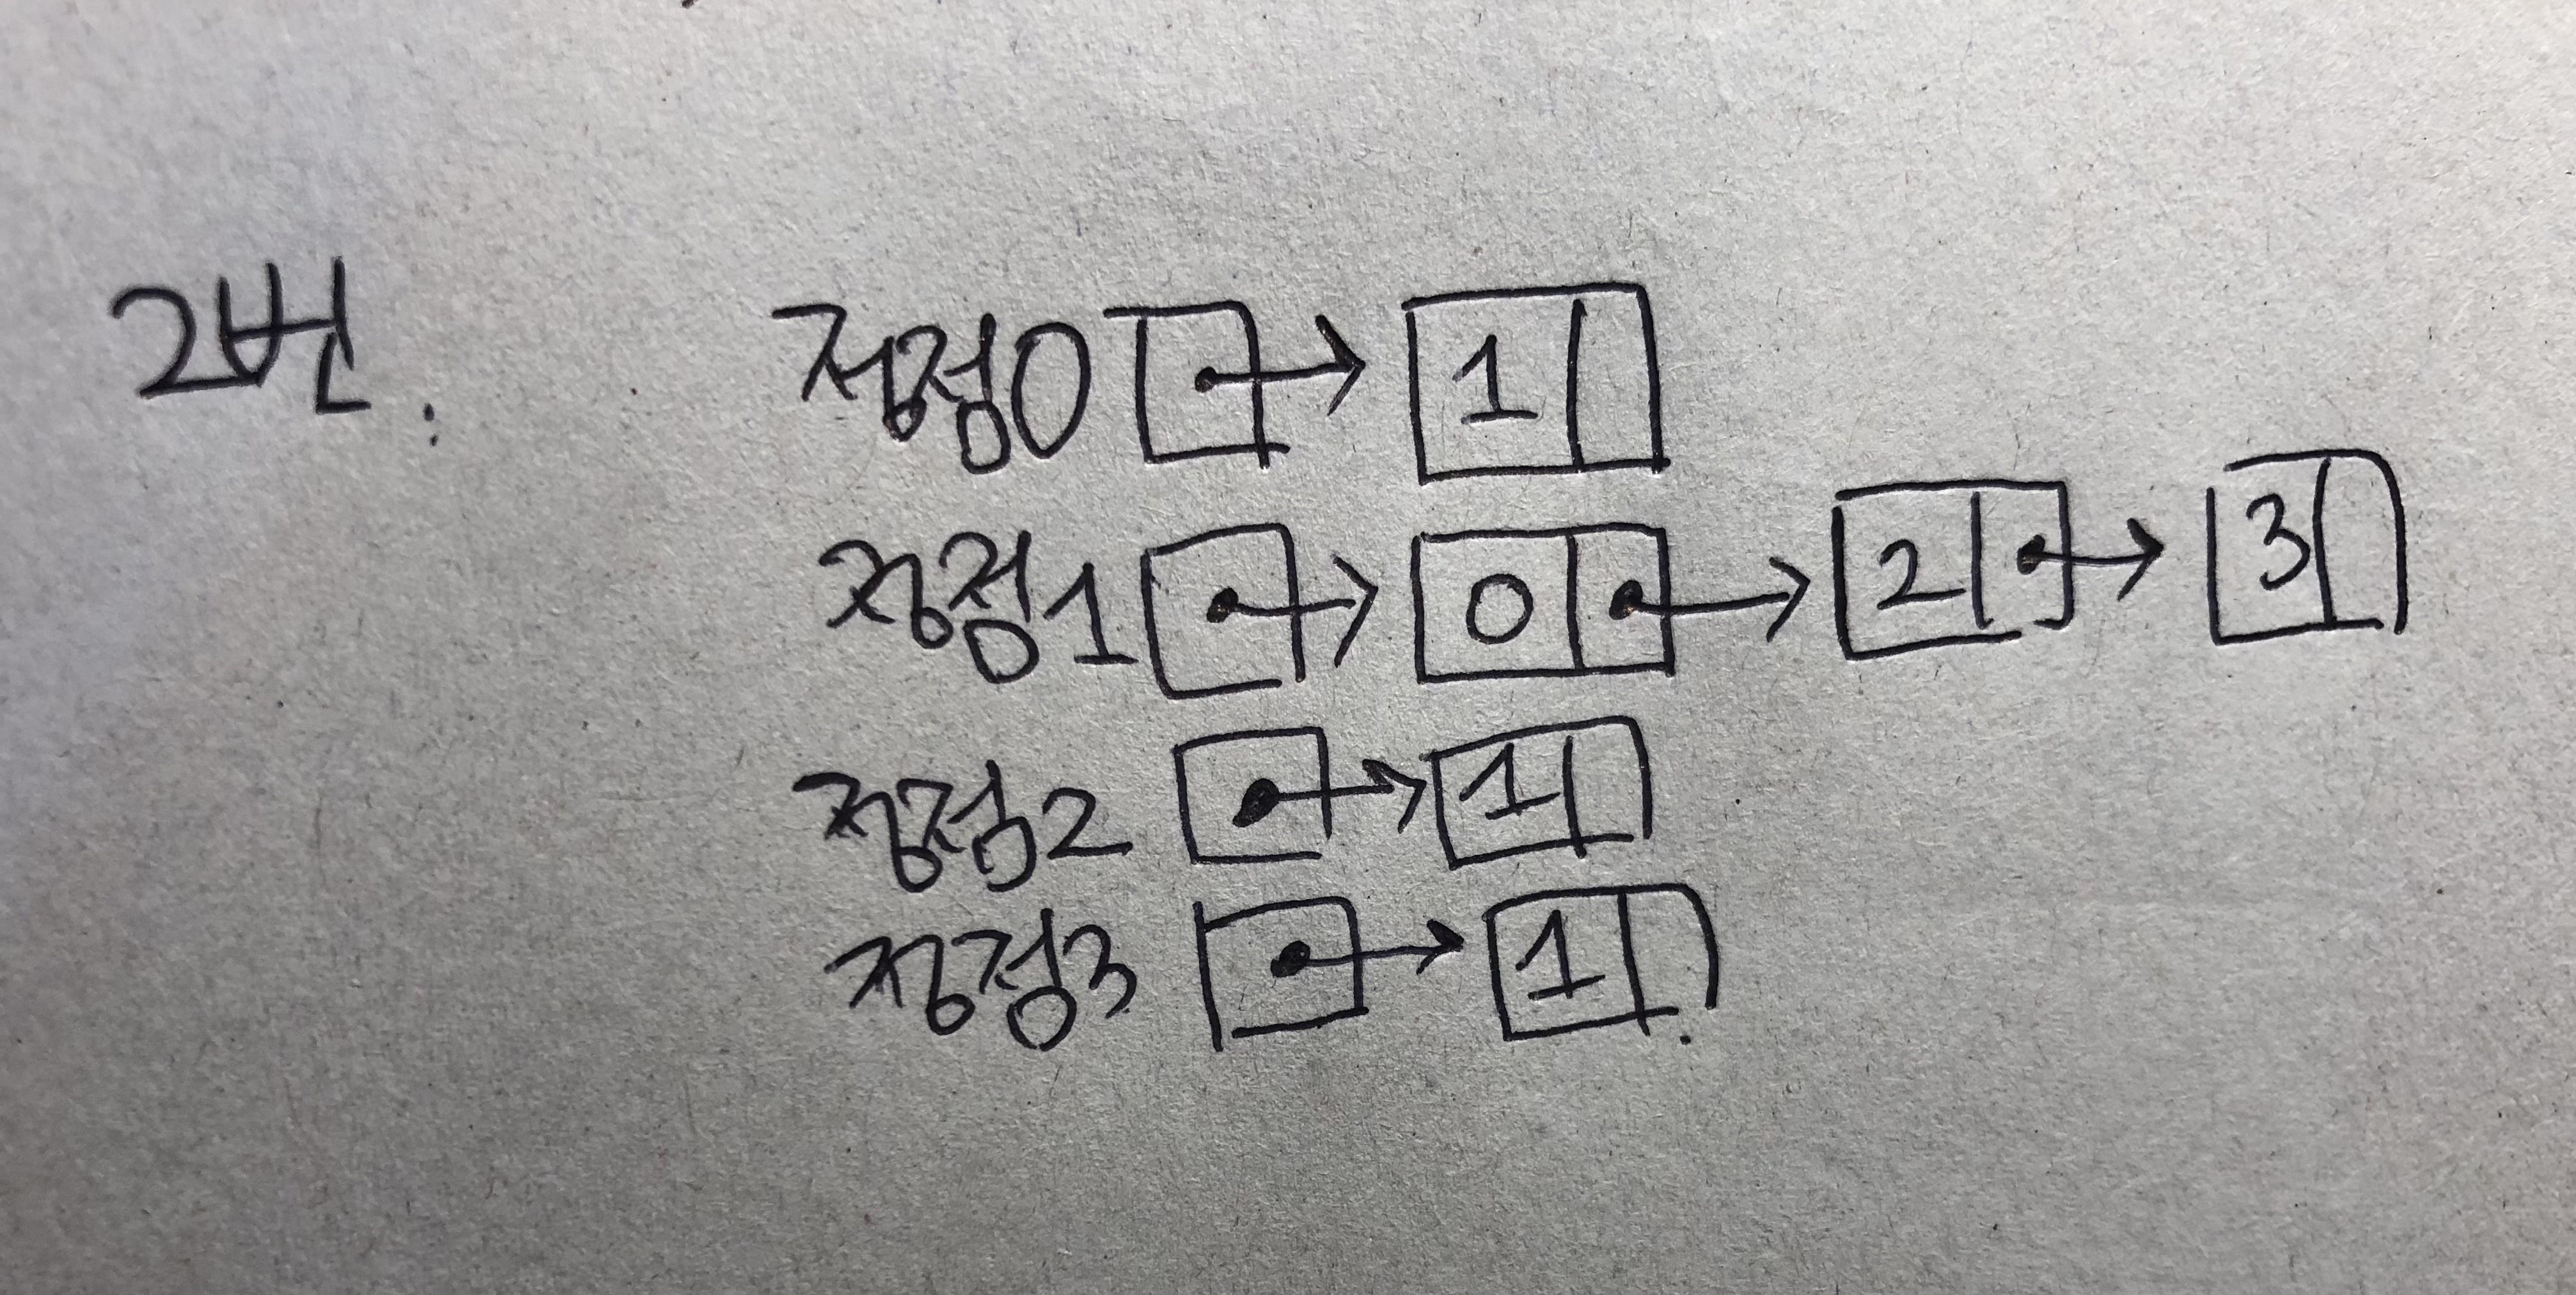 2번.
정점0 1
정점1 0 2 3
정점2 1
정점3 1